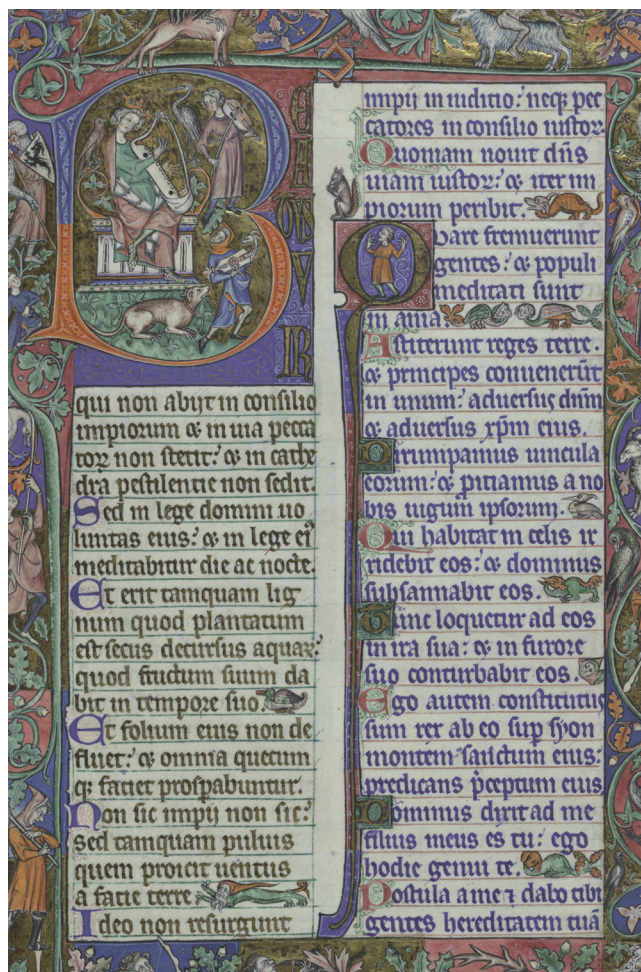 B
EA
TVS
V
IR
qui non abijt in consilio
impiorum ⁊ in uia pecca
toꝝ non stetit: ⁊ in cathe
dra pestilentie non sedit.
Sed in lege domini uo
luntas eius: ⁊ in lege ei᷒
meditabitur die ac nocte.
Et erit tamquam lig
num quod plantatum
est secus decursus aquaꝝ:
quod fructum suum da
bit in tempore suo.
Et folium eius non de
fluet: ⁊ omnia quecum
qꝫ faciet prosꝑabuntur.
Non sic impij non sic:
sed tamquam puluis
quem proicit uentus
a facie terre.
Ideo non resurgunt
impij in iuditio: neqꝫ pec
catores in consilio iustoꝝ.
Quoniam nouit dn̄s
uiam iustoꝝ: ⁊ iter im
piorum peribit.
Quare fremuerunt
gentes: ⁊ populi
meditati sunt
in ania.
Astiterunt reges terre.
⁊ principes conuenerūt
in unum: aduersus dn̄m
⁊ aduersus xp̄m eius.
Dirumpamus uincula
eorum: ⁊ proitiamus a no
bis iugum ipsorum.
Qui habitat in celis ir
ridebit eos: ⁊ dominus
subsannabit eos.
Tunc loquetur ad eos
in ira sua: ⁊ in furore
suo conturbabit eos.
Ego autem constitutus
sum rex ab eo suꝑ syon
montem sanctum eius:
predicans p̄ceptum eius
Dominus dixit ad me
filius meus es tu: ego
hodie genui te.
Postula a me ⁊ dabo tibi
gentes hereditatem tuā